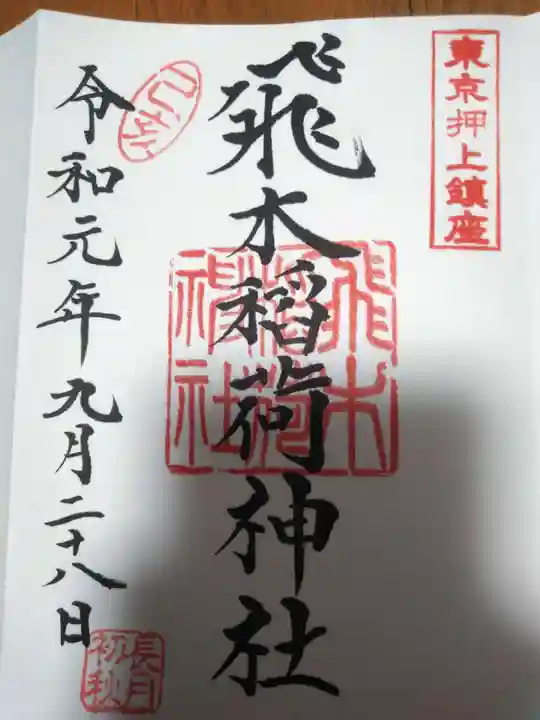 東京押上鎮座
飛木稲荷神社
飛木
稲荷
神社
令和元年九月二十八日
長月
初秋